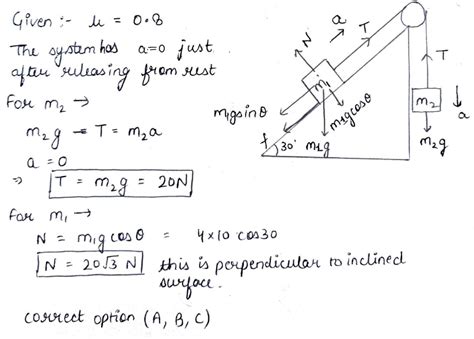 Given :- μ = 0.8
The system has a=0 just
after releasing from rest
For m₂ →
m₂g - T = m₂a
a = 0
⇒ T = m₂g = 20N
For m₁ →
N = m₁g cosθ = 4×10 cos30
N = 20√3 N this is perpendicular to inclined
surface.
correct option (A, B, C)
N
a
T
m₁
m₁gsinθ
m₁gcosθ
f
30°
m₁g
T
m₂
a
m₂g